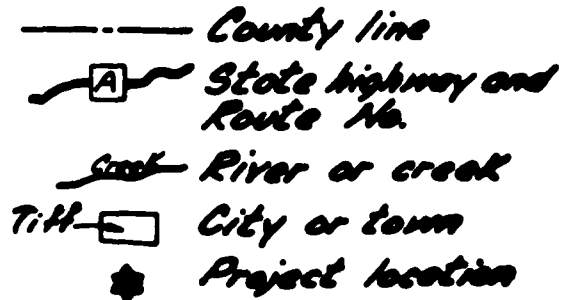 County line
A State highway and
Route No.
Creek River or creek
Tiff City or town
Project location